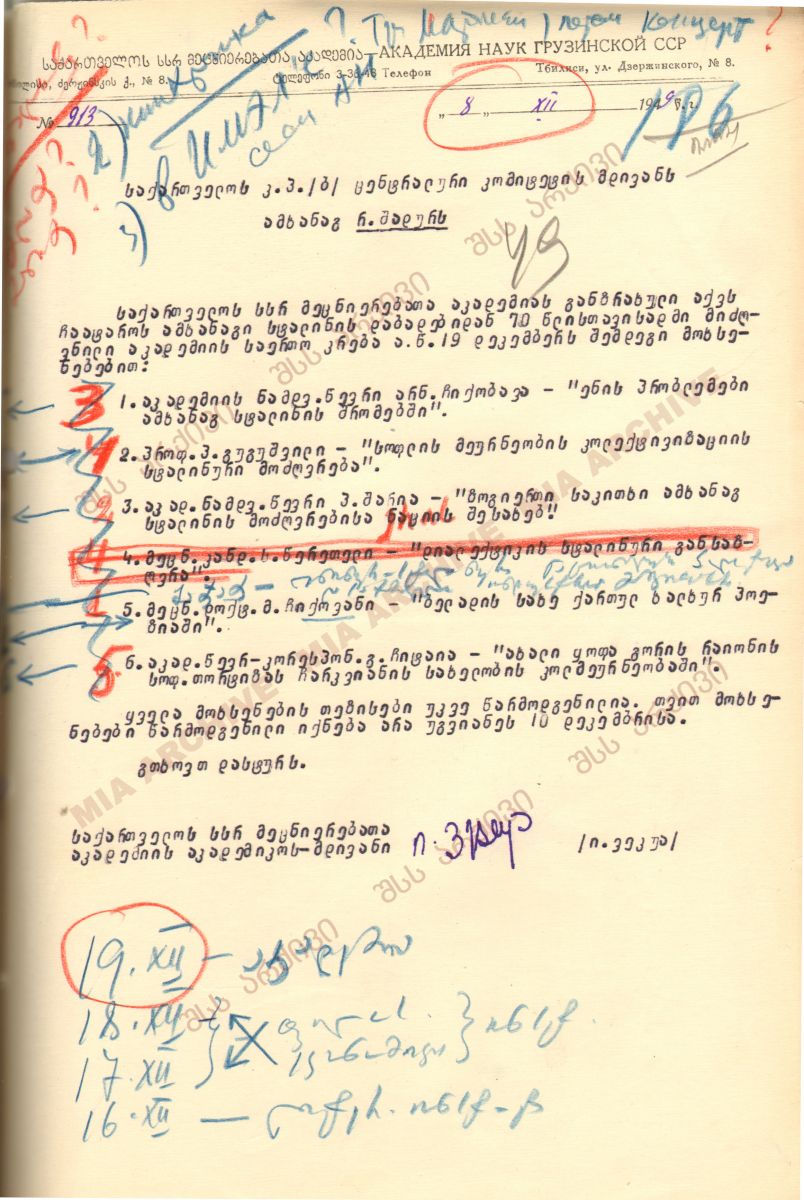 საქართველოს სსრ მეცნიერებათა აკადემია—АКАДЕМИЯ НАУК ГРУЗИНСКОЙ ССР
ძერჟინსკის ქ., № 8. ტელეფონი 3-36-48 Телефон Тбилиси, ул. Дзержинского, № 8.
№ 913 „ 8 „ XII 1949 წ. г.
186
საქართველოს კ.პ./ბ/ ცენტრალური კომიტეტის მდივანს
ამხანაგ რ.შადურს
საქართველოს სსრ მეცნიერებათა აკადემიას განზრახული აქვს
ჩაატაროს ამხანაგი სტალინის დაბადებიდან 70 წლისთავისადმი მიძღ-
ვნილი აკადემიის საერთო კრება ა.წ.19 დეკემბერს შემდეგი მოხსე-
ნებებით:
3 1.აკადემიის ნამდვ.წევრი არნ.ჩიქობავა – "ენის პრობლემები
ამხანაგ სტალინის შრომებში".
2.პროფ.პ.გუგუშვილი – "სოფლის მეურნეობის კოლექტივიზაციის
სტალინური მოძღვრება".
2 3.აკად.ნამდვ.წევრი პ.შარია – "ზოგიერთი საკითხი ამხანაგ
სტალინის მოძღვრებისა ნაციის შესახებ"
4.მეცნ.კანდ.ს.წერეთელი – "დიალექტიკის სტალინური განსაზ-
ღვრა".
1 5.მეცნ.დოქტ.მ.ჩიქოვანი – "ბელადის სახე ქართულ ხალხურ პოე-
ზიაში".
5. 6.აკად.წევრ-კორესპონ.გ.ჩიტაია – "ახალი ყოფა გორის რაიონის
სოფ.ტორტიზას ჩარკვიანის სახელობის კოლმეურნეობაში".
ყველა მოხსენების თეზისები უკვე წარმოდგენილია. თვით მოხსე-
ნებები წარმოდგენილი იქნება არა უგვიანეს 10 დეკემბრისა.
გთხოვთ დასტურს.
საქართველოს სსრ მეცნიერებათა
აკადემიის აკადემიკოს-მდივანი ი. ვეკუა /ი.ვეკუა/
19. XII — აკადემია
18. XII
17. XII
16. XII —
MIA ARCHIVE
შსს არქივი